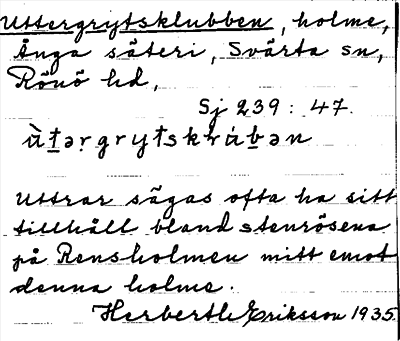 Uttergrytsklubben, holme,
Änga säteri, Svärta sn,
Rönö hd,
Sj 239: 47.
Uttrar sägas ofta ha sitt
tillhåll bland stenrösena
på Rensholmen mitt emot
denna holme.
Herberth Eriksson 1935.